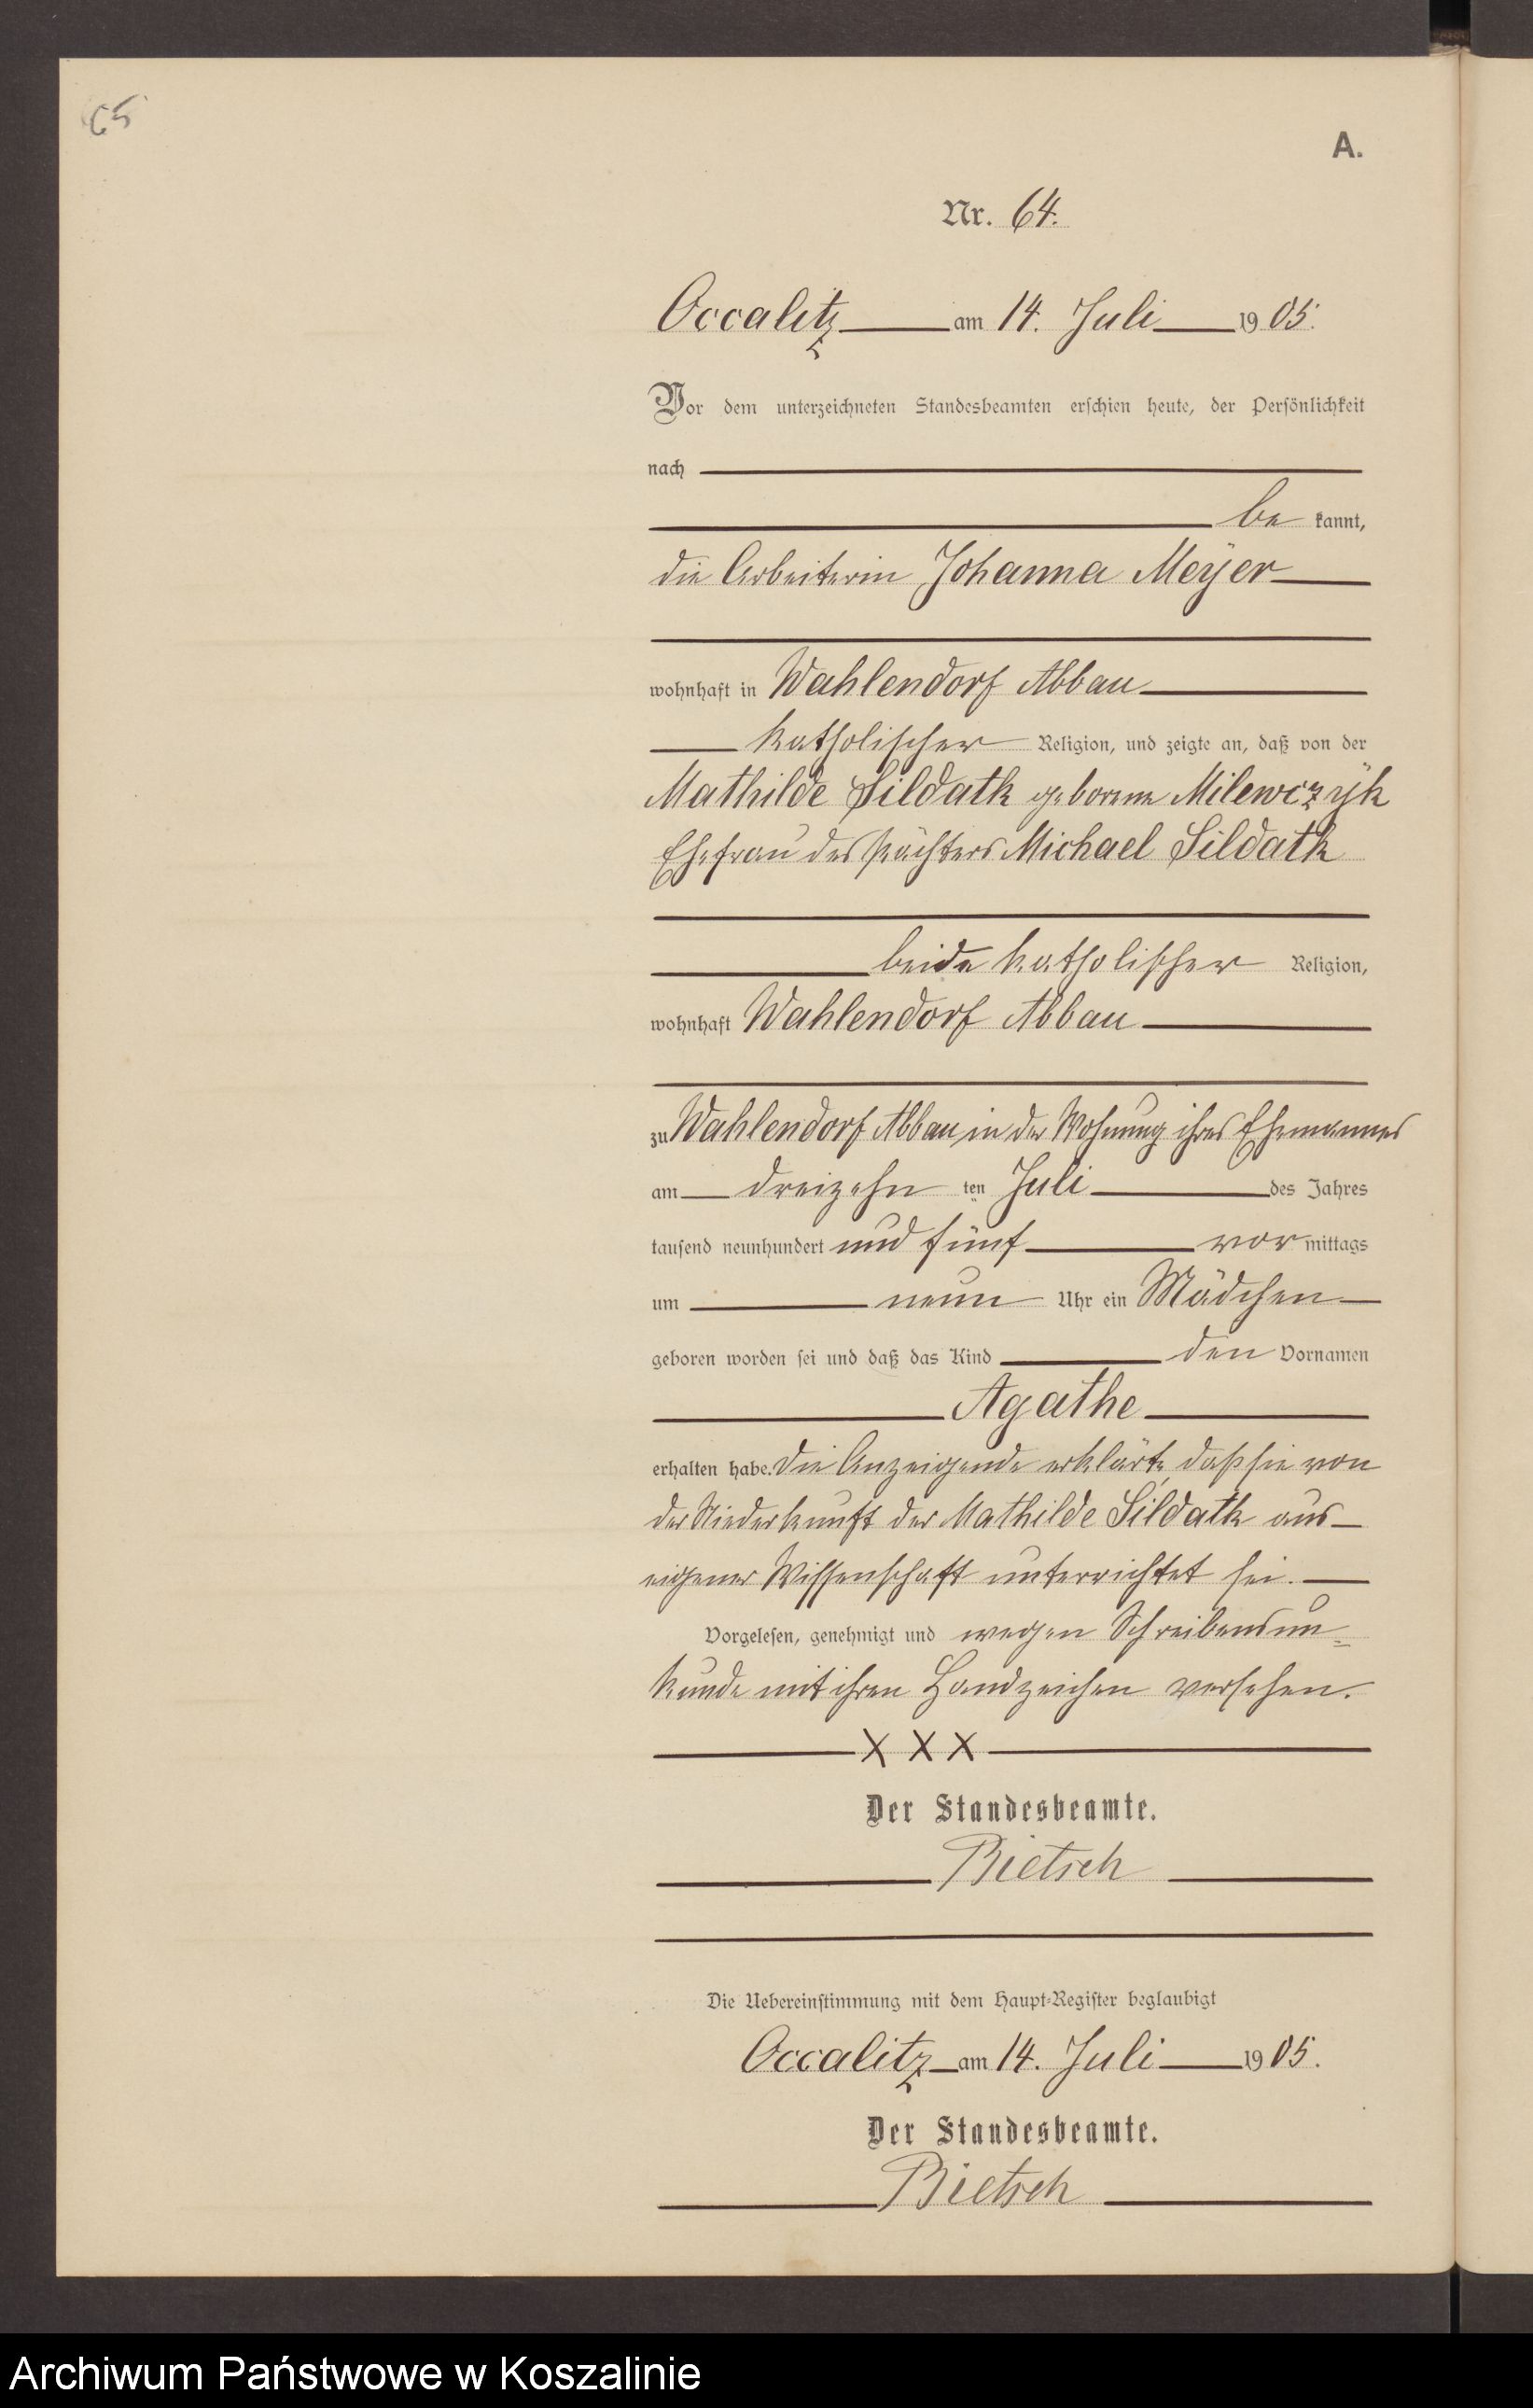 65
A.
Nr. 64.
Occalitz am 14. Juli 1905.
Vor dem unterzeichneten Standesbeamten erschien heute, der Persönlichkeit
nach
be kannt,
die Arbeiterin Johanna Meÿer
wohnhaft in Wahlendorf Abbau
katholischer Religion, und zeigte an, daß von der
Mathilde Sildatk geborene Milewczÿk
Ehefrau des Pächters Michael Sildatk
beide katholischer Religion,
wohnhaft Wahlendorf Abbau
zu Wahlendorf Abbau in der Wohnung ihres Ehemannes
am dreizehn ten Juli des Jahres
tausend neunhundert und fünf vor mittags
um neun Uhr ein Mädchen
geboren worden sei und daß das Kind den Vornamen
Agathe
erhalten habe. Die Anzeigende erklärte, daß sie von
der Niederkunft der Mathilde Sildatk aus
eigener Wissenschaft unterrichtet sei.
Vorgelesen, genehmigt und wegen Schreibensun-
kunde mit ihren Handzeichen versehen.
X X X
Der Standesbeamte.
Bietsch
Die Uebereinstimmung mit dem Haupt-Register beglaubigt
Occalitz am 14. Juli 1905.
Der Standesbeamte.
Bietsch
Archiwum Państwowe w Koszalinie